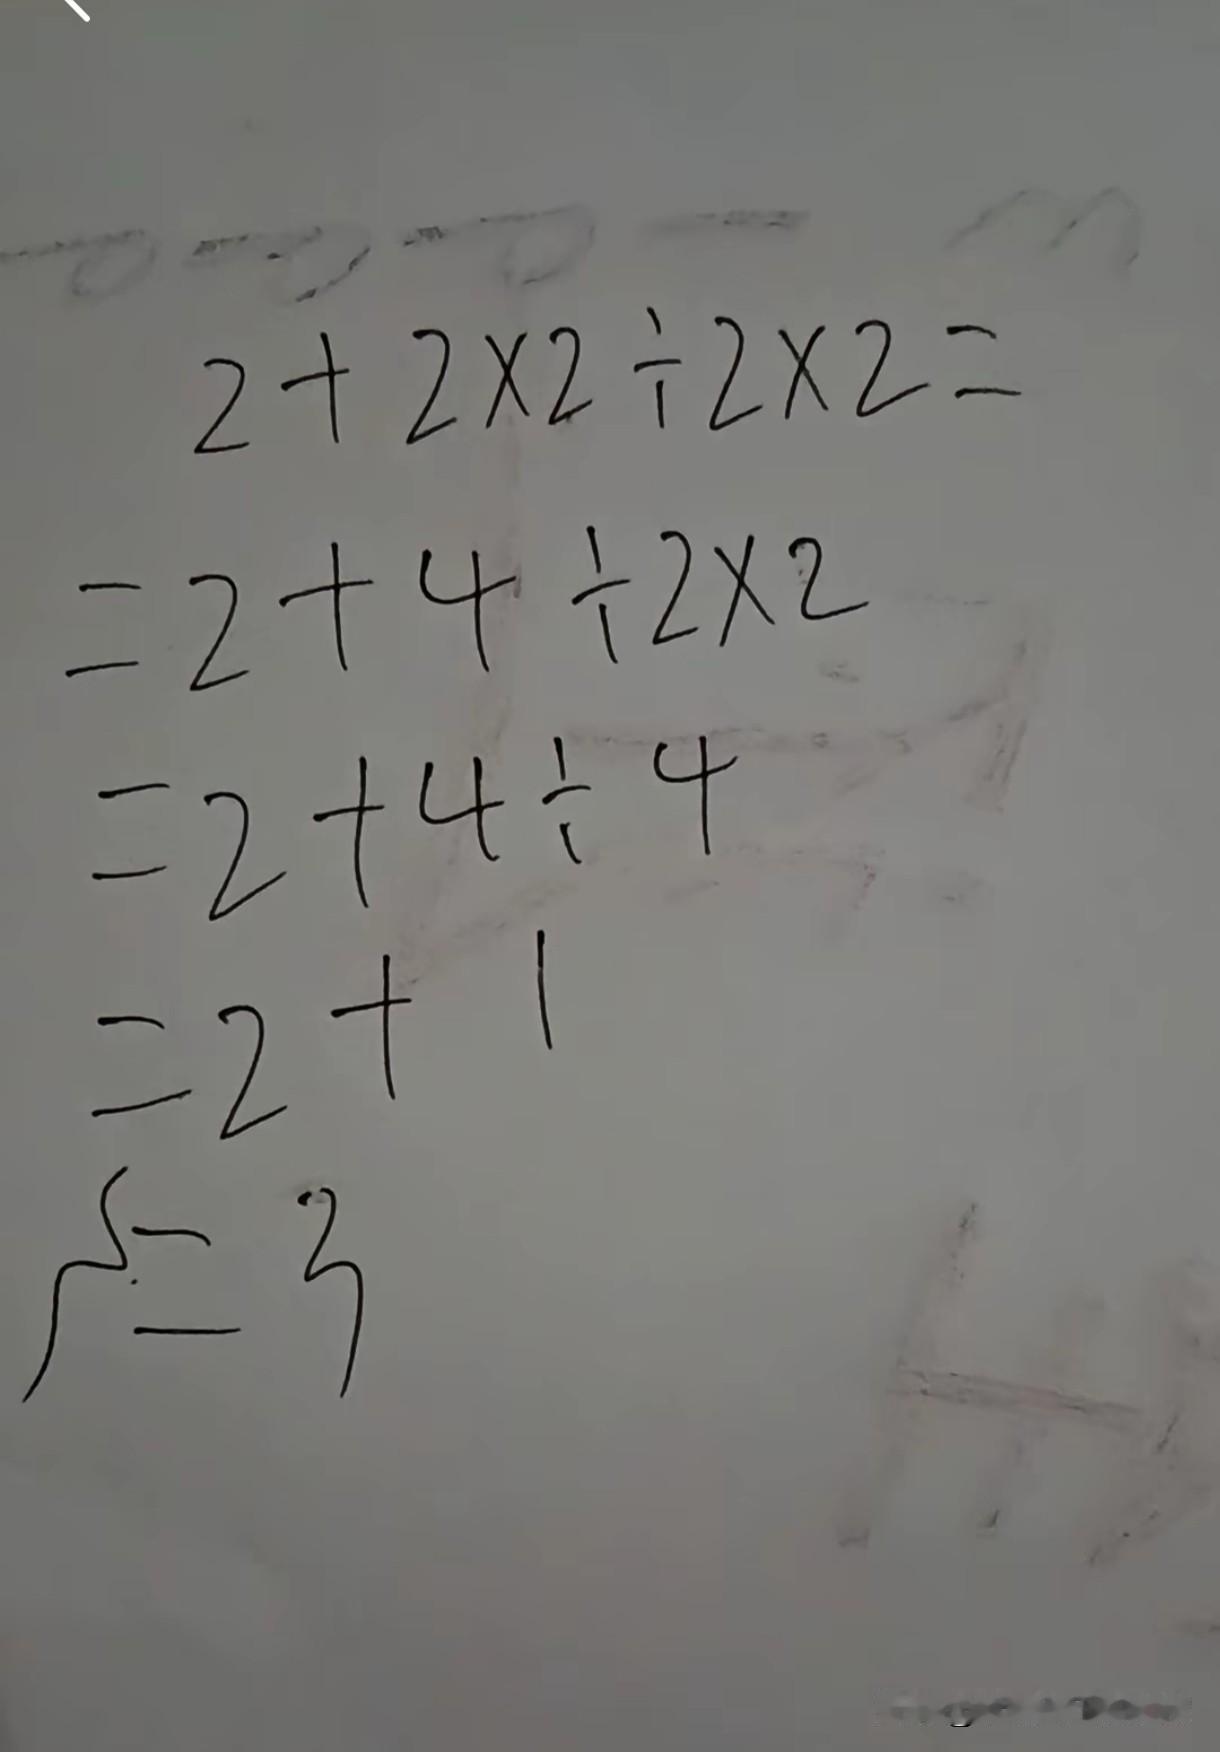 2 + 2×2÷2×2=
=2+4÷2×2
=2+4÷4
=2+1
=3